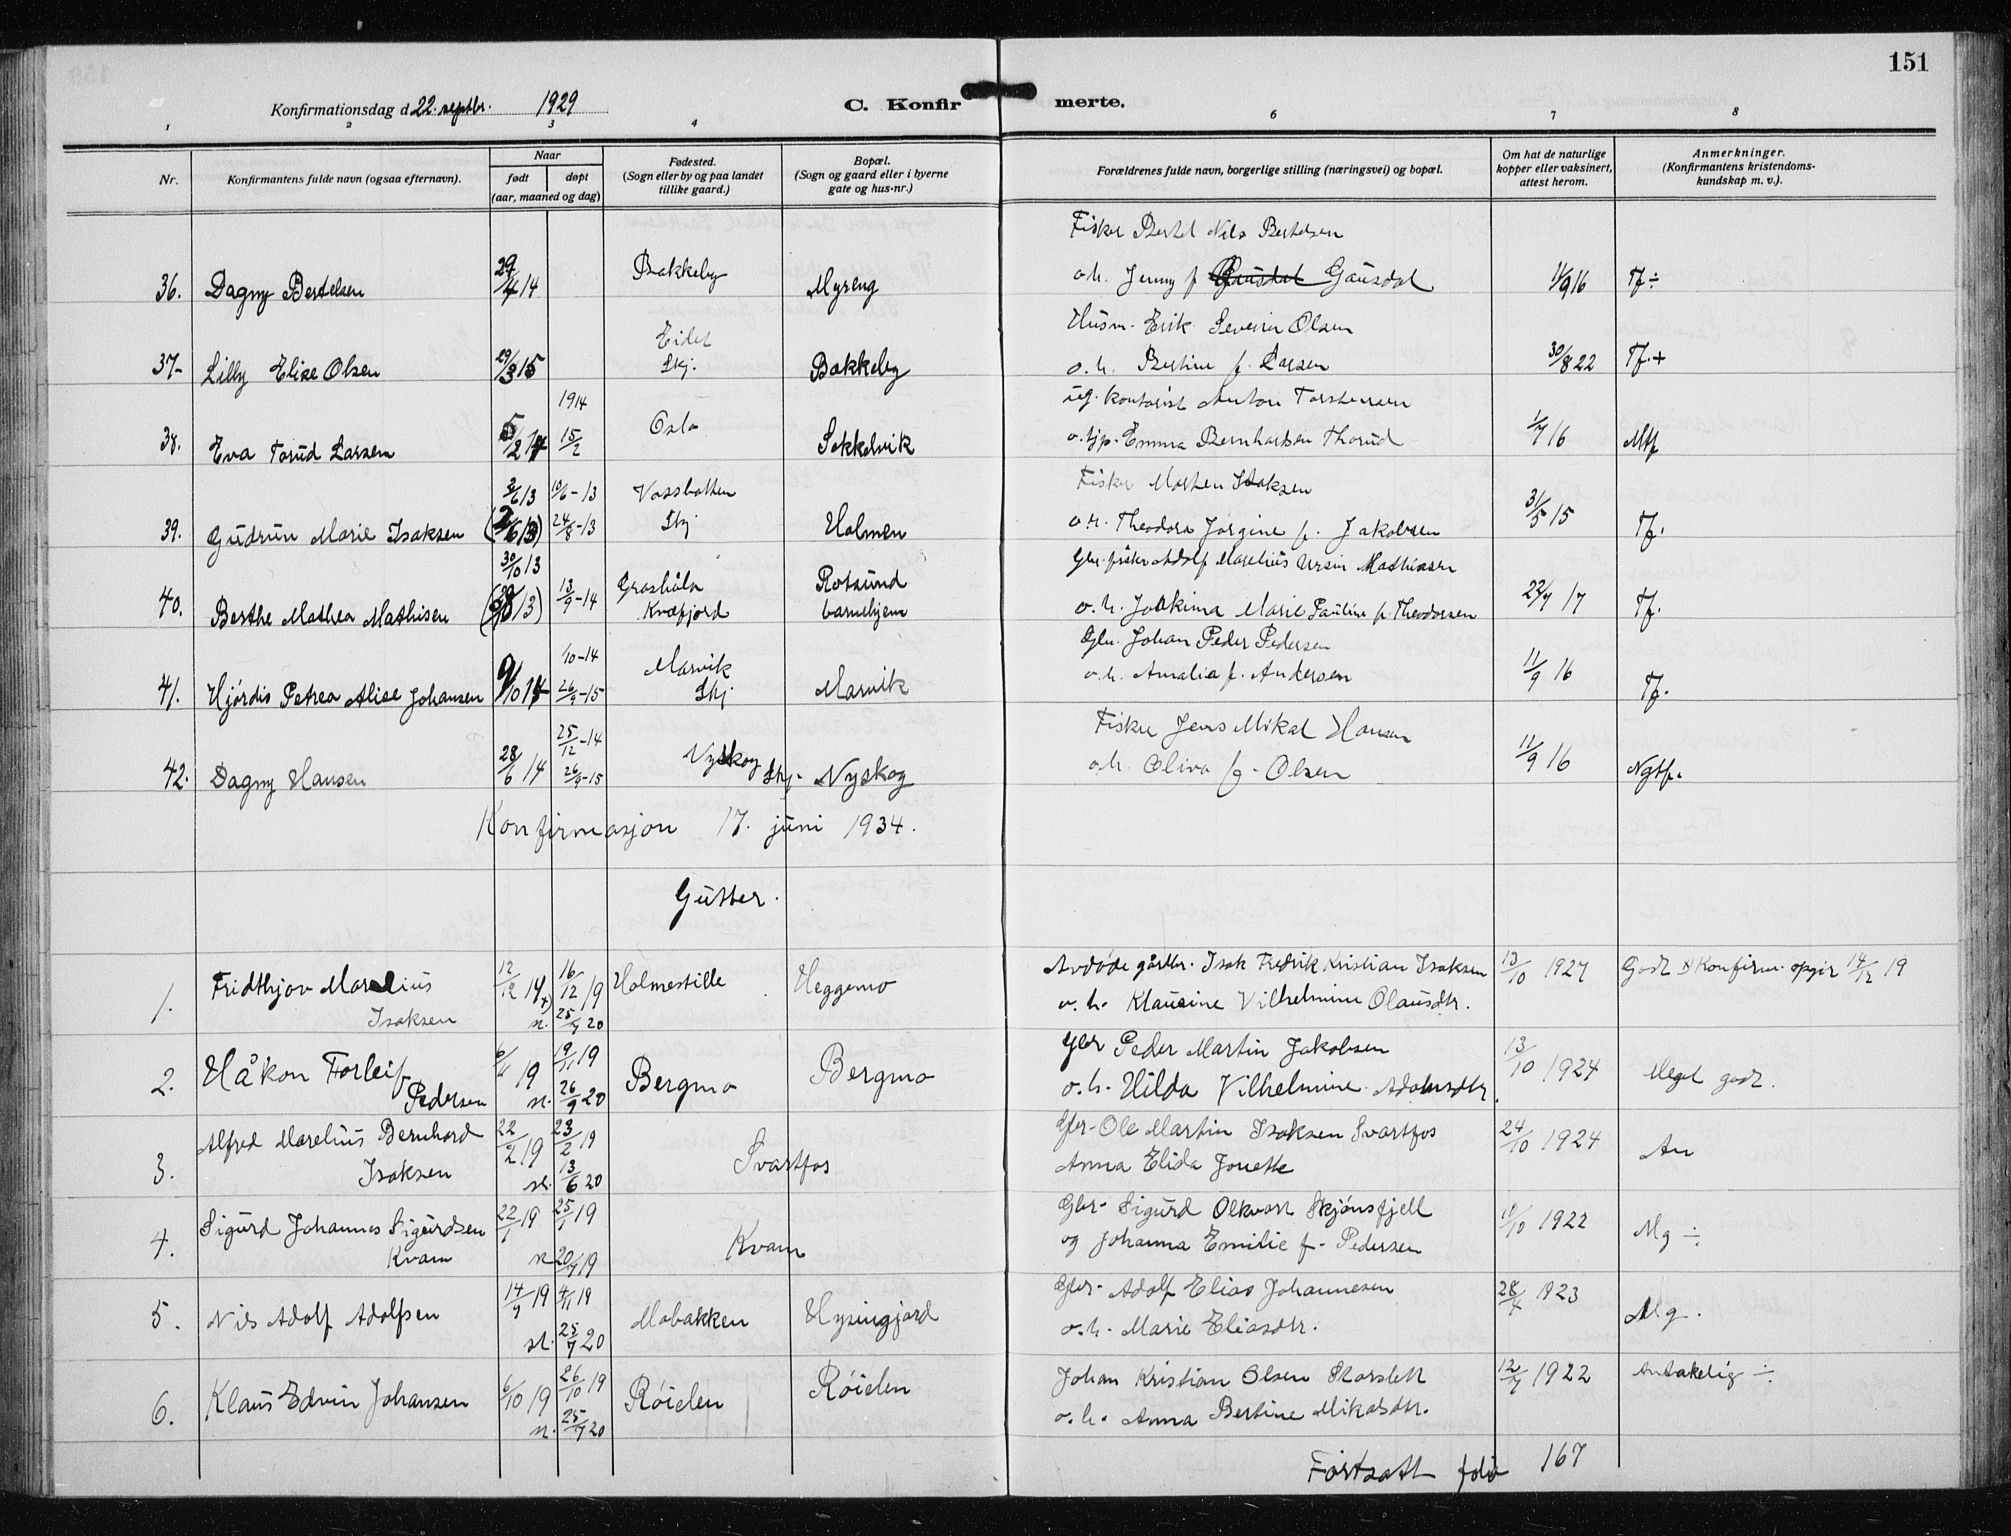 151
Konfirmationsdag d. 22. septbr. 1929
C. Konfirmerte.
1 2 3 4 6 7 8
Nr.
Konfirmantens fulde navn (ogsaa efternavn).
Naar
født døpt
(aar, maaned og dag)
Fødested.
(Sogn eller by og paa landet
tillike gaard.)
Bopæl.
(Sogn og gaard eller i byerne
gate og hus-nr.)
Forældrenes fulde navn, borgerlige stilling (næringsvei) og bopæl.
Om hat de naturlige
kopper eller vaksinert,
attest herom.
Anmerkninger.
(Konfirmantens kristendoms-
kundskap m. v.).
Fisker Bertel Nils Bertelsen
36. Dagny Bertelsen 29/4 14 Bakkeby Myreng o.h. Jenny f. Gausdal 11/9 16 Tf ÷
Husm. Erik Severin Olsen
37. Lilly Elise Olsen 29/3 15 Eidet Skj. Bakkeby o.h. Bertine f. Larsen 30/8 22 Tf. +
ug. kontorist Anton Torstensen
38. Eva Torud Larsen 5/2 14 1914 15/2 Oslo Sokkelvik o. tjp. Emma Bernhartsen Thorud 1/7 16 Mtf
Fisker Morten Isaksen
39. Gudrun Marie Isaksen 2/6 13 10/6-13 24/8-13 Vassbotten Skj. Holmen o.h. Theodora Jorgine f. Jakobsen 31/5 15 Tf.
Gbr. fisker Adolf Marelius Ursin Mathiasen
40. Berthe Mathea Mathisen 30/10 13 13/9-14 Grashåla Kvæfjord Rotsund barnehjem o.h. Joakima Marie Pauline f. Theodorsen 22/7 17 Tf.
Gbr. Johan Peder Pedersen
41. Hjørdis Petrea Alise Johansen 9/10 14 /10-14 26/9-15 Marvik Skj Marvik o.h. Amalia f. Andersen 11/9 16 Tf.
Fisker Jens Mikal Hansen
42. Dagny Hansen 28/6 14 25/12-14 26/9-15 Nyskog Skj. Nyskog o.h. Oliva f. Olsen 11/9 16 Ngtf.
Konfirmasjon 17. juni 1934.
Gutter.
1. Fridthjov Marelius 12/12 19 16/12 19 Holmestille Heggemo Avdøde gårdbr. Isak Fredrik Kristian Isaksen 13/10 1927 Godt 14/12 19
Isaksen st. 25/7 20 o.h. Klausine Vilhelmine Olausdtr.
2. Håkon Torleif 6/11 19 19/11 19 Bergmo Bergmo Gbr Peder Martin Jakobsen 13/10 1924 Meget godt.
Pedersen st. 26/9 20 o.h. Hilda Vilhelmine
3. Alfred Marelius Bernhard 22/2 19 23/2 19 Svartfos Gbr. Ole Martin Isaksen Svartfos 24/10 1924 An
Isaksen st. 13/6 20 Anna Elida Jonette
4. Sigurd Johannes Sigurdsen 22/1 19 25/1 19 Kvam Gbr. Sigurd Olkvart Skjønsfjell 10/10 1922 Mg ÷
Kvam st. 20/7 19 og Johanna Emilie f. Pedersen
5. Nils Adolf Adolfsen 14/9 19 4/11 19 Mobakken Hysingjord Gbr. Adolf Elias Johannesen 28/4 1923 Mg.
st. 25/7 20 o.h. Marie Eliasdtr.
6. Klaus Edvin Johansen 6/10 19 26/10 19 Røielen Røielen Johan Kristian Olsen Storslett 12/7 1922 Antakelig ÷
st. 25/7 20 o.h. Anna Bertine Mikalsdtr.
Fortsatt folio 167